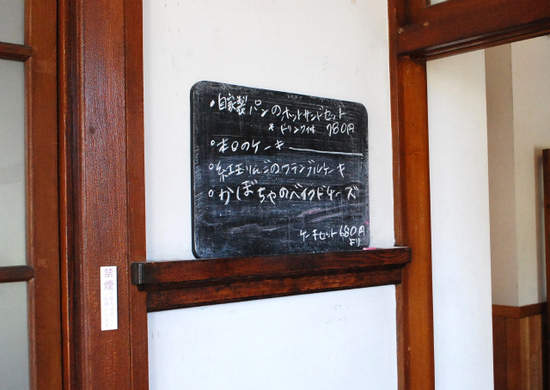 ・自家製パンのホットサンドセット
＊ドリンク付 780円
・本日のケーキ
・紅玉りんごのクランブルケーキ
・かぼちゃのベイクドチーズ
ケーキセット 680円
より
禁煙